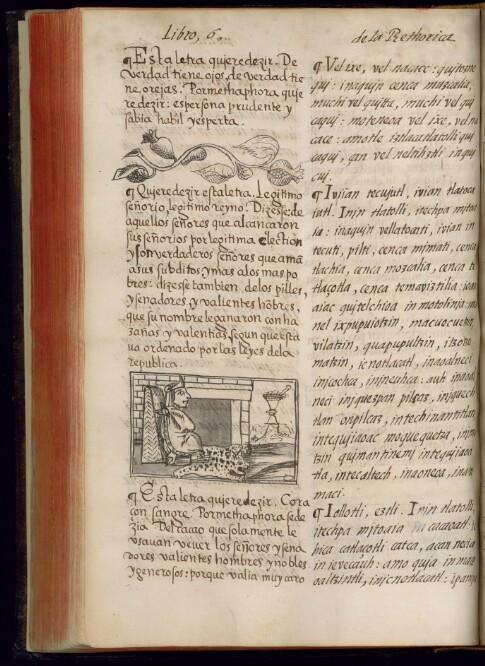 Libro, 6.
de la Rethorica
¶ Esta letra quiere dezir. De
verdad tiene ojos, de verdad tie
ne orejas. Por methaphora quie
re dezir: es persona prudente y
sabia habil y esperta.
¶ Quiere dezir esta letra. Legitimo
señorio, legitimo reyno: Dizese: de
aquellos señores que alcançaron
sus señorios por legitima election
y son verdaderos señores que amã
a sus subditos y mas a los mas po
bres: dizese tambien de los pilles,
y senadores, y valientes hõbres,
que su nombre leganaron con ha
zañas y valentias, segun que esta
va ordenado por las leyes de la
republica.
¶ Esta letra quiere dezir. Cora
con sangre. Por methaphora se de
zia Del cacao que solamente le
vsauan veuer los señores y sena
dores valientes hombres y nobles
y generosos: porque valia muy caro
¶ Vel ixe, vel nacace: quitozne
qui: inaquin cenca muzcalia,
muchi vel quitta, muchi vel qui
caqui: moteneoa vel ixe, vel na
cace: amotle iztlacatlatolli qui
caqui, çan vel neltiliztli inqui
cui.
¶ Ivjian tecujutl, ivian tlatoca
iutl. Inin tlatolli, itechpa mjtoa
ia: inaqujn vellatoani, ivian in
tecuti, pilti, cenca mjmati, cenca
tlachia, cenca mozcalia, cenca te
tlaçotla, cenca temaviztilia:
aiac quitelchioa in motolinja:
nel ixpupuiotzin, macuecuetzin,
vilatzin, quapupultzin,
matzin, icnotlacatl,
¶ Iollotli, eztli. Inin tlatolli,
itechpa mjtoaia in cacaoatl:
pica catlacotli catca, acan necia
in ievecauh: amo quja in mace
oaltzintli, injcnotlacatl: